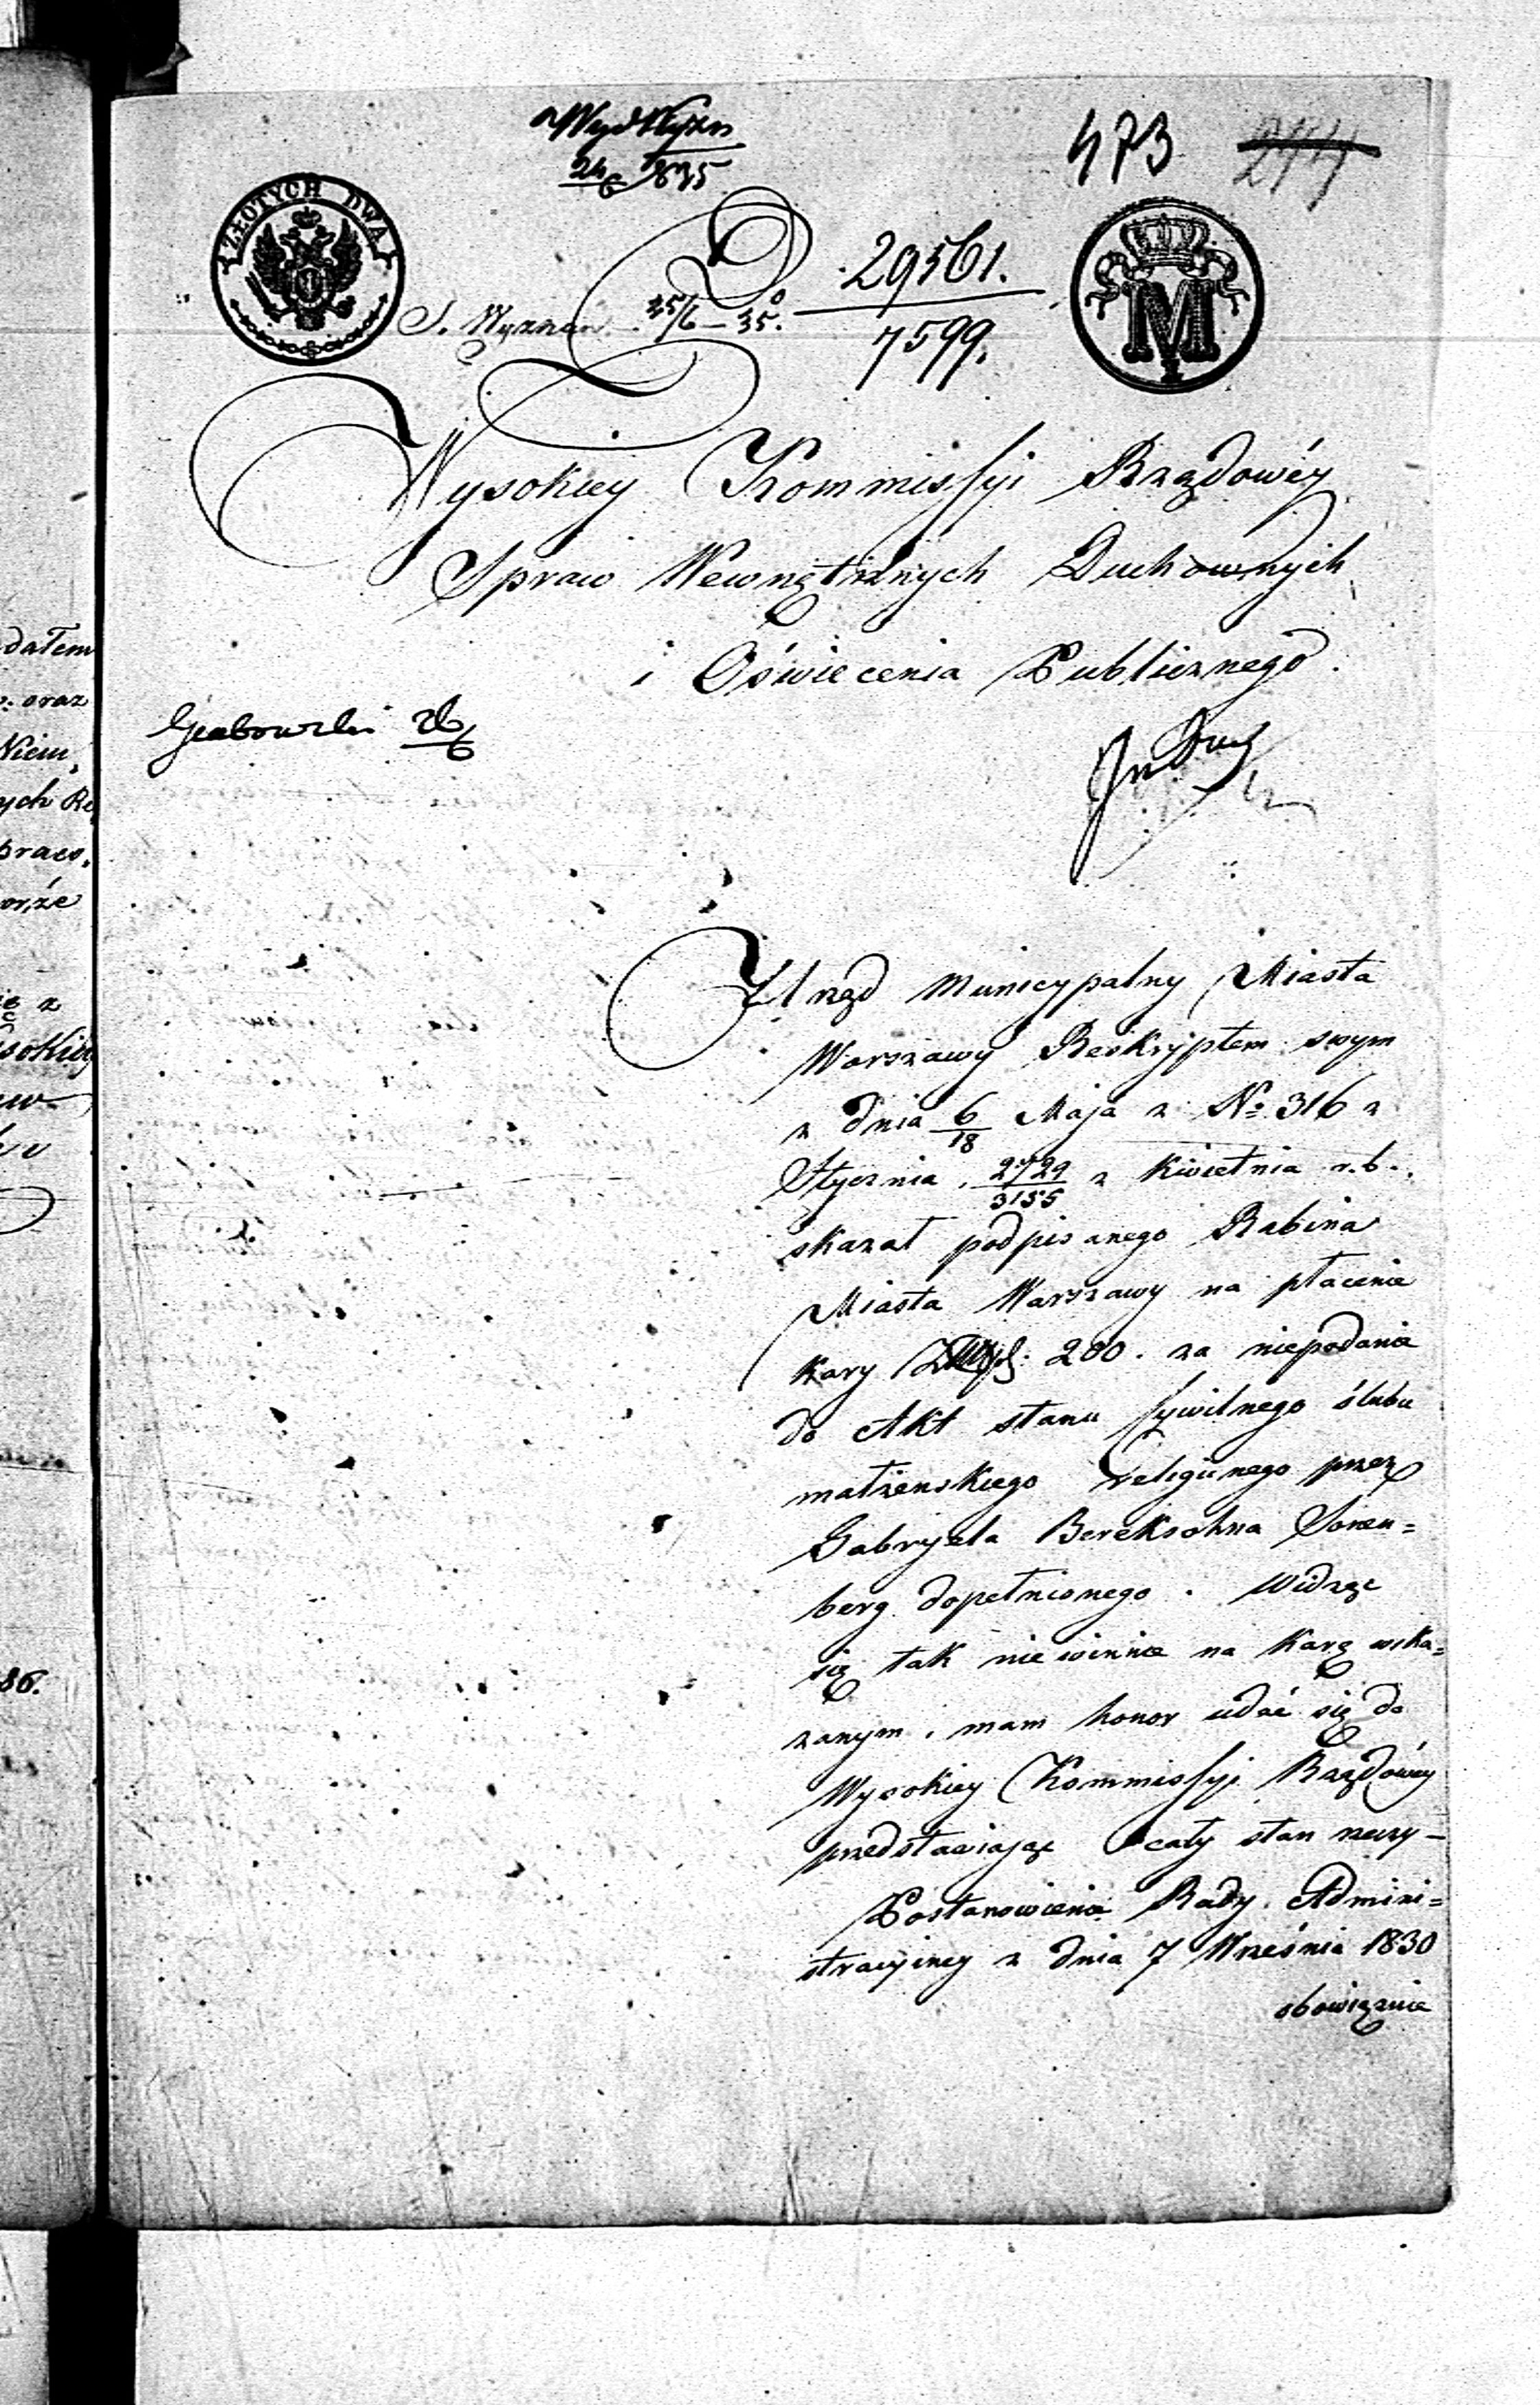 WydWyzn
24/6 835
473 244
ZŁOTYCH DWA
Do 29561.
7599.
S. Wyznań 25/6 – 35.
M
Wysokiey Kommissyi Rządowéy
Spraw Wewnętrznych Duchownych
i Oświecenia Publicznego.
Grabowski
Urząd Municypalny Miasta
Warszawy Reskryptem swym
z dnia 6/18 Maja z No 316 z
Stycznia, 2729/3155 z kwietnia r.b.
skazał podpisanego Rabina
Miasta Warszawy na płacenie
kary 200. za niepodanie
do Akt stanu Cywilnego ślubu
małżenskiego religiinego przez
Gabryela Bereksohna Soren=
berg dopełnionego. Widząc
się tak niewinnie na karę wska=
zanym, mam honor udać się do
Wysokiey Kommissyi Rządowéy
przedstawiając cały stan rzeczy –
Postanowienie Rady Admini=
stracyiney z dnia 7 Września 1830
obowiązuie
dałem
oraz
Niem,
ych Re
prawo,
orże
z
sokiey
86.